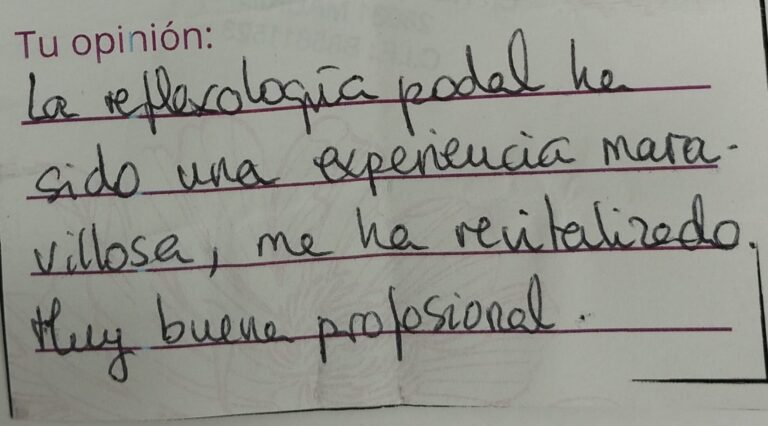 Tu opinión:
La reflexología podal ha
sido una experiencia mara-
villosa, me ha revitalizado.
Muy buena profesional.